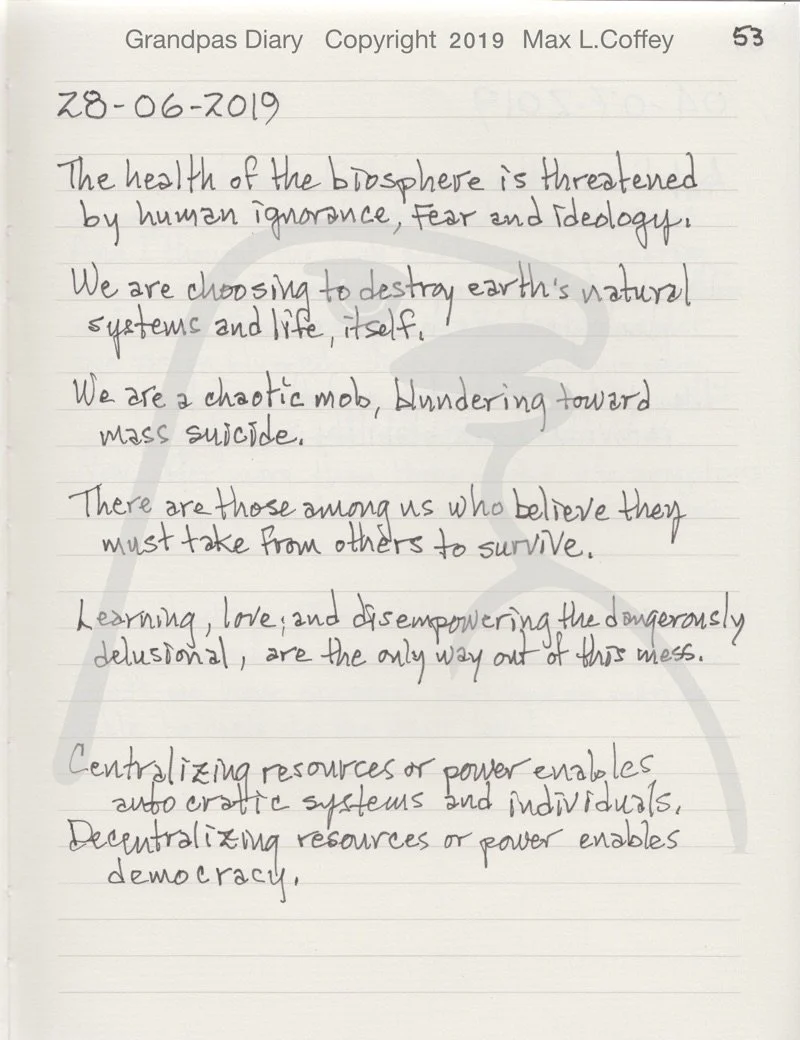 Grandpas Diary Copyright 2019 Max L.Coffey 53
28-06-2019
The health of the biosphere is threatened
by human ignorance, fear and ideology.
We are choosing to destroy earth's natural
systems and life, itself.
We are a chaotic mob, blundering toward
mass suicide.
There are those among us who believe they
must take from others to survive.
Learning, love; and disempowering the dangerously
delusional, are the only way out of this mess.
Centralizing resources or power enables
autocratic systems and individuals.
Decentralizing resources or power enables
democracy.